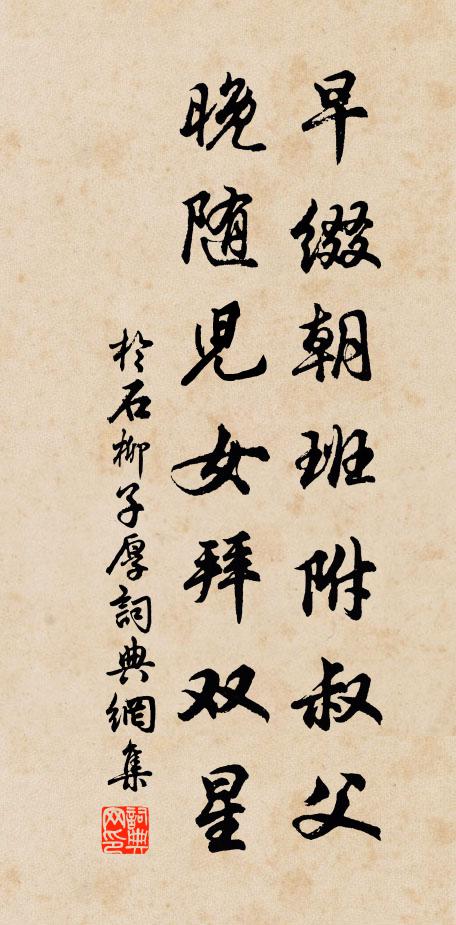 早缀朝班附叔父
晚随兒女拜双星
於石柳子厚詞典網集
詞典网印